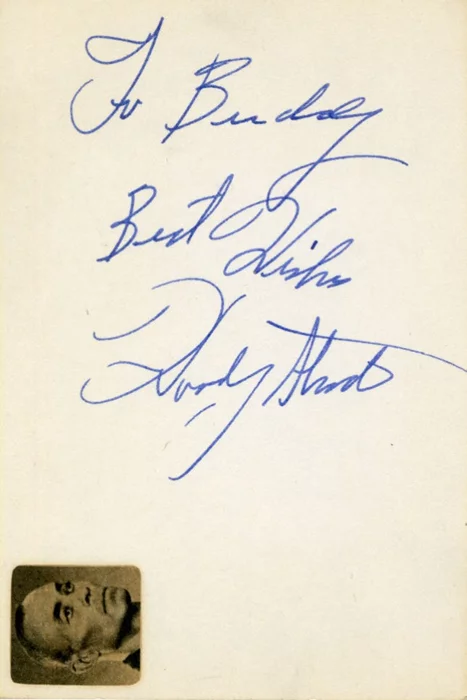 To Buddy
Best
Wishes
Woody Strode